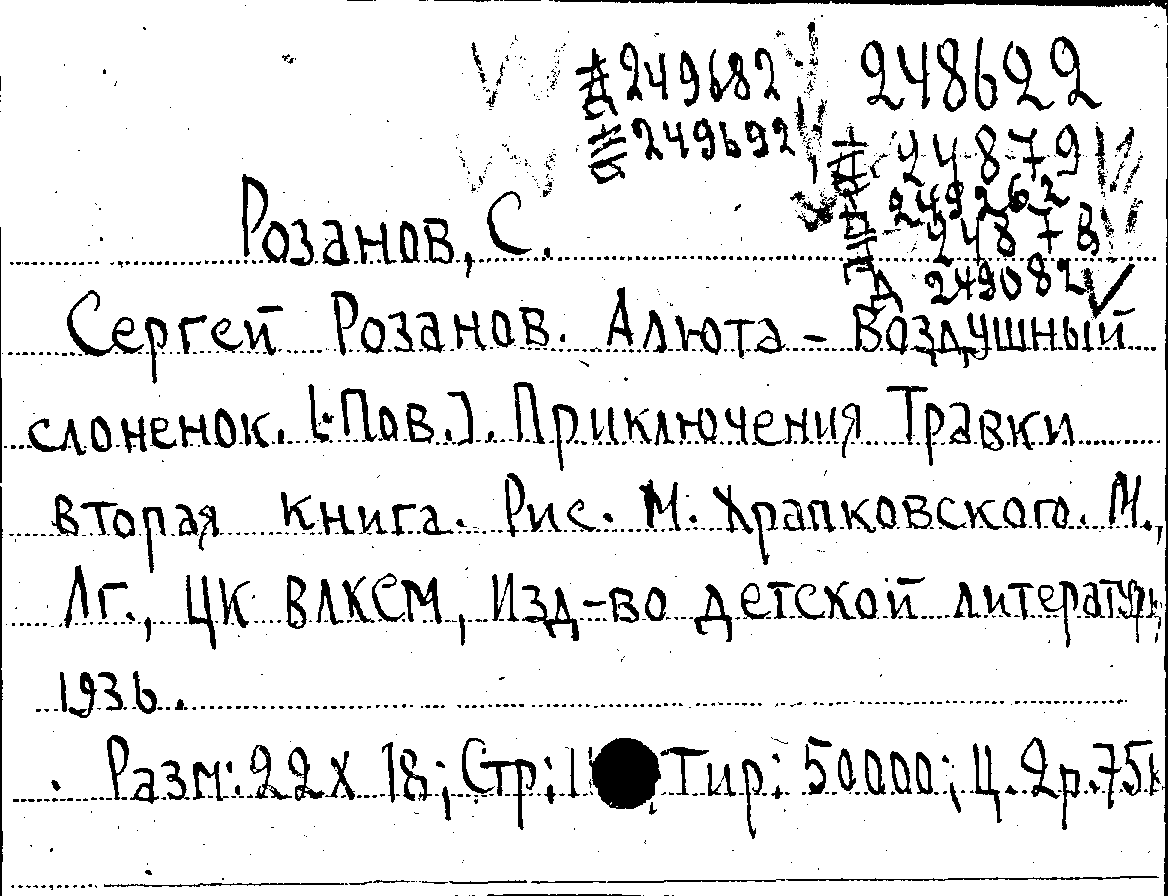 249682 248622
249692 24879
249262
24878
Розанов, С.
Д 249082
Сергей Розанов. Алюта – Воздушный
слоненок. [Пов.]. Приключения Травки
вторая книга. Рис. М. Храпковского. М.,
Лг., ЦК ВЛКСМ, Изд-во детской литературы,
1936.
Разм: 22 X 18; Стр: Тир: 50000; Ц. 2р.75к